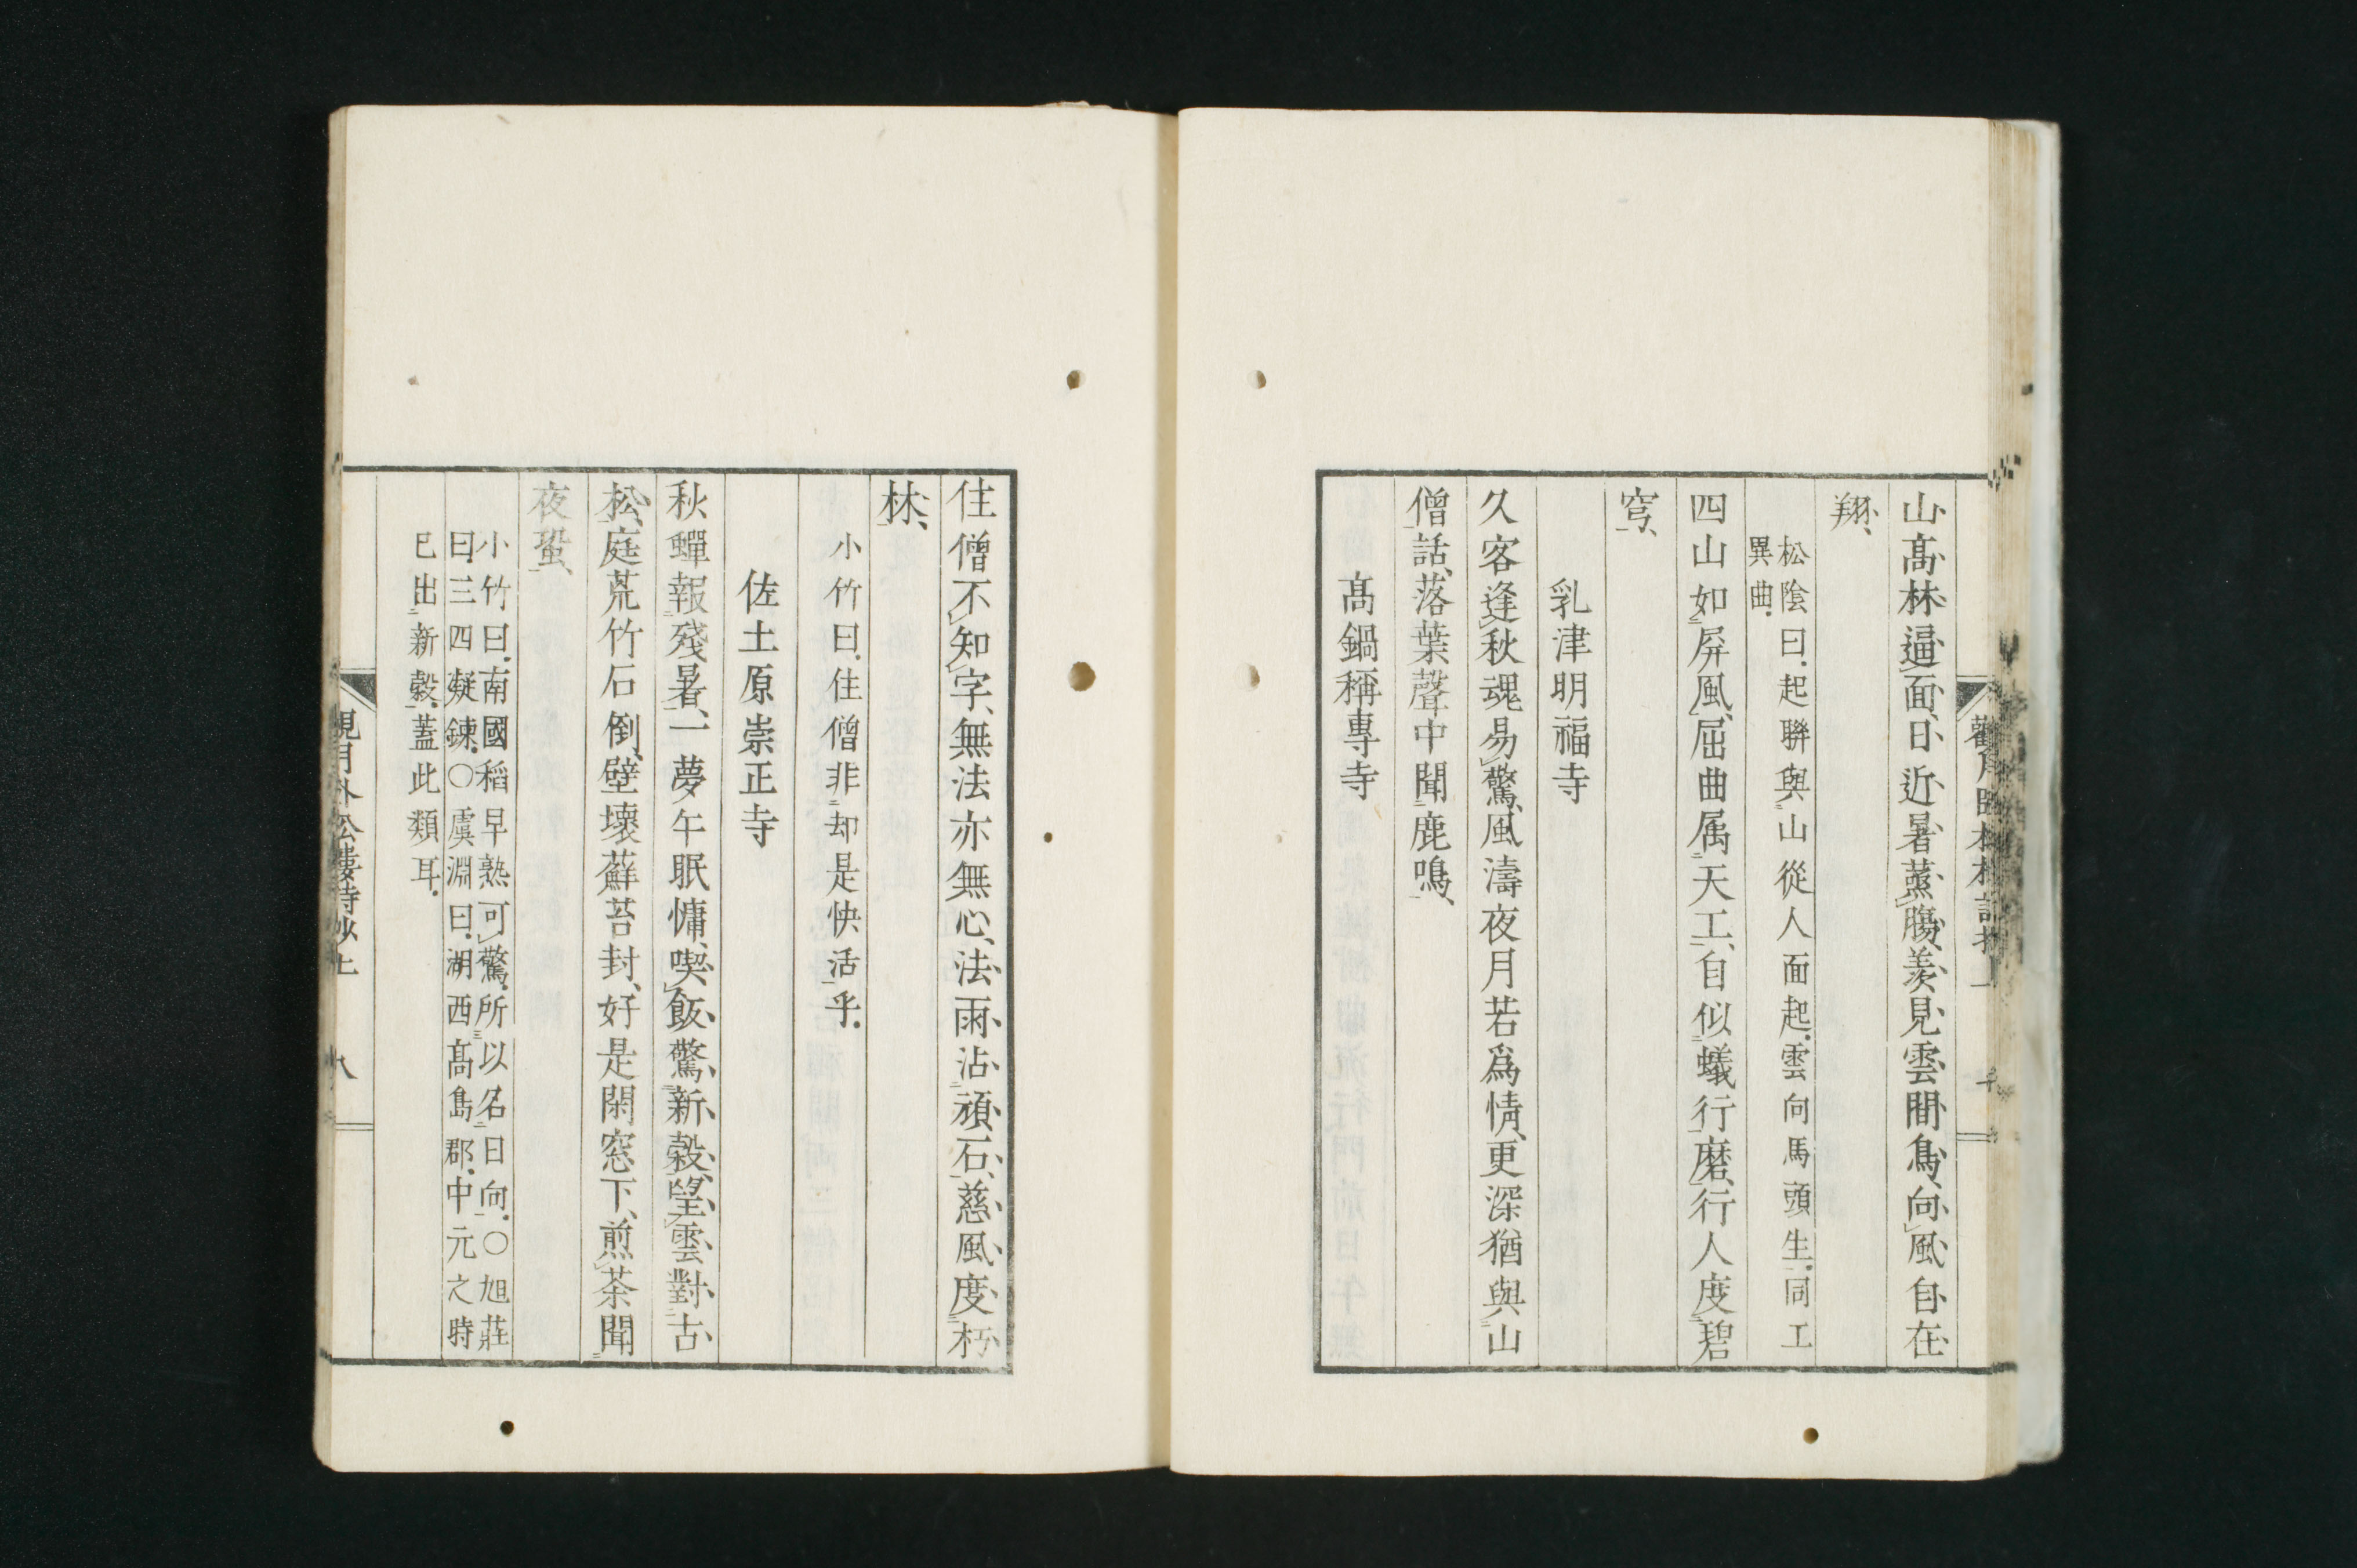 山高林逼面日近暑蒸膓羨見雲間鳥向風自在
翔
松陰曰起聯與山從人面起雲向馬頭生同工
異曲
四山如屏風屈曲属天工自似蟻行磨行人度碧
穹
乳津明福寺
久客逢秋魂易驚風濤夜月若爲情更深猶與山
僧話落葉聲中聞鹿鳴
高鍋稱專寺
住僧不知字無法亦無心法雨沾頑石慈風度朽
林
小竹曰住僧非却是快活乎
佐土原崇正寺
秋蟬報殘暑一夢午眠慵喫飯驚新穀望雲對古
松庭荒竹石倒壁壞蘚苔封好是閑窓下煎茶聞
夜蛩
小竹曰南國稻早熟可驚所以名日向〇旭莊
曰三四凝鍊〇虞淵曰湖西高島郡中元之時
已出新穀蓋此類耳
觀月臥松樓詩抄上 八